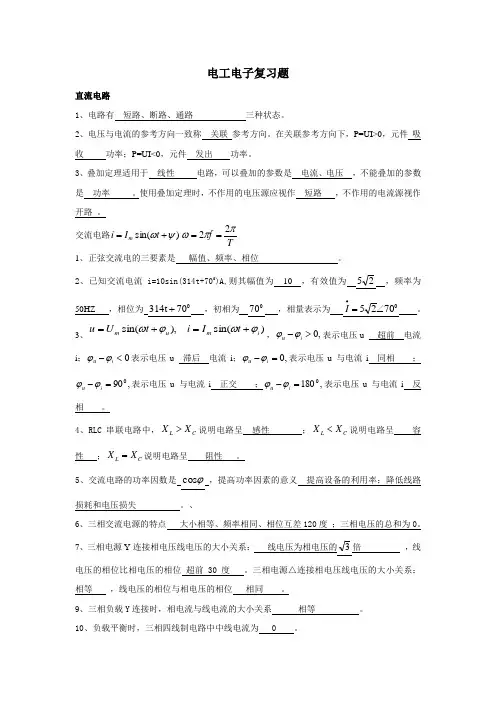 电工电子复习题
直流电路
1、电路有 短路、断路、通路 三种状态。
2、电压与电流的参考方向一致称 关联 参考方向。在关联参考方向下,P=UI>0,元件 吸
收 功率;P=UI<0,元件 发出 功率。
3、叠加定理适用于 线性 电路,可以叠加的参数是 电流、电压 ,不能叠加的参数
是 功率 。使用叠加定理时,不作用的电压源应视作 短路 ,不作用的电流源视作
开路 。
交流电路 i = I_m sin(ωt + ψ) ω = 2πf = 2π/T
1、正弦交流电的三要素是 幅值、频率、相位 。
2、已知交流电流 i=10sin(314t+70⁰)A,则其幅值为 10 ,有效值为 5√2 ,频率为
50HZ ,相位为 314t + 70⁰ ,初相为 70⁰ ,相量表示为 İ = 5√2∠70⁰ 。
3、u = U_m sin(ωt + φ_u), i = I_m sin(ωt + φ_i) ,φ_u − φ_i > 0, 表示电压 u 超前 电流
i;φ_u − φ_i < 0 表示电压 u 滞后 电流 i;φ_u − φ_i = 0, 表示电压 u 与电流 i 同相 ;
φ_u − φ_i = 90⁰, 表示电压 u 与电流 i 正交 ;φ_u − φ_i = 180⁰, 表示电压 u 与电流 i 反
相 。
4、RLC 串联电路中,X_L > X_C 说明电路呈 感性 ;X_L < X_C 说明电路呈 容
性 ;X_L = X_C 说明电路呈 阻性 。
5、交流电路的功率因数是 cosφ ,提高功率因素的意义 提高设备的利用率;降低线路
损耗和电压损失 。、
6、三相交流电源的特点 大小相等、频率相同、相位互差 120 度 ;三相电压的总和为 0。
7、三相电源 Y 连接相电压线电压的大小关系: 线电压为相电压的√3倍 ,线
电压的相位比相电压的相位 超前 30 度 。三相电源△连接相电压线电压的大小关系:
相等 ,线电压的相位与相电压的相位 相同 。
9、三相负载 Y 连接时,相电流与线电流的大小关系 相等 。
10、负载平衡时,三相四线制电路中中线电流为 0 。